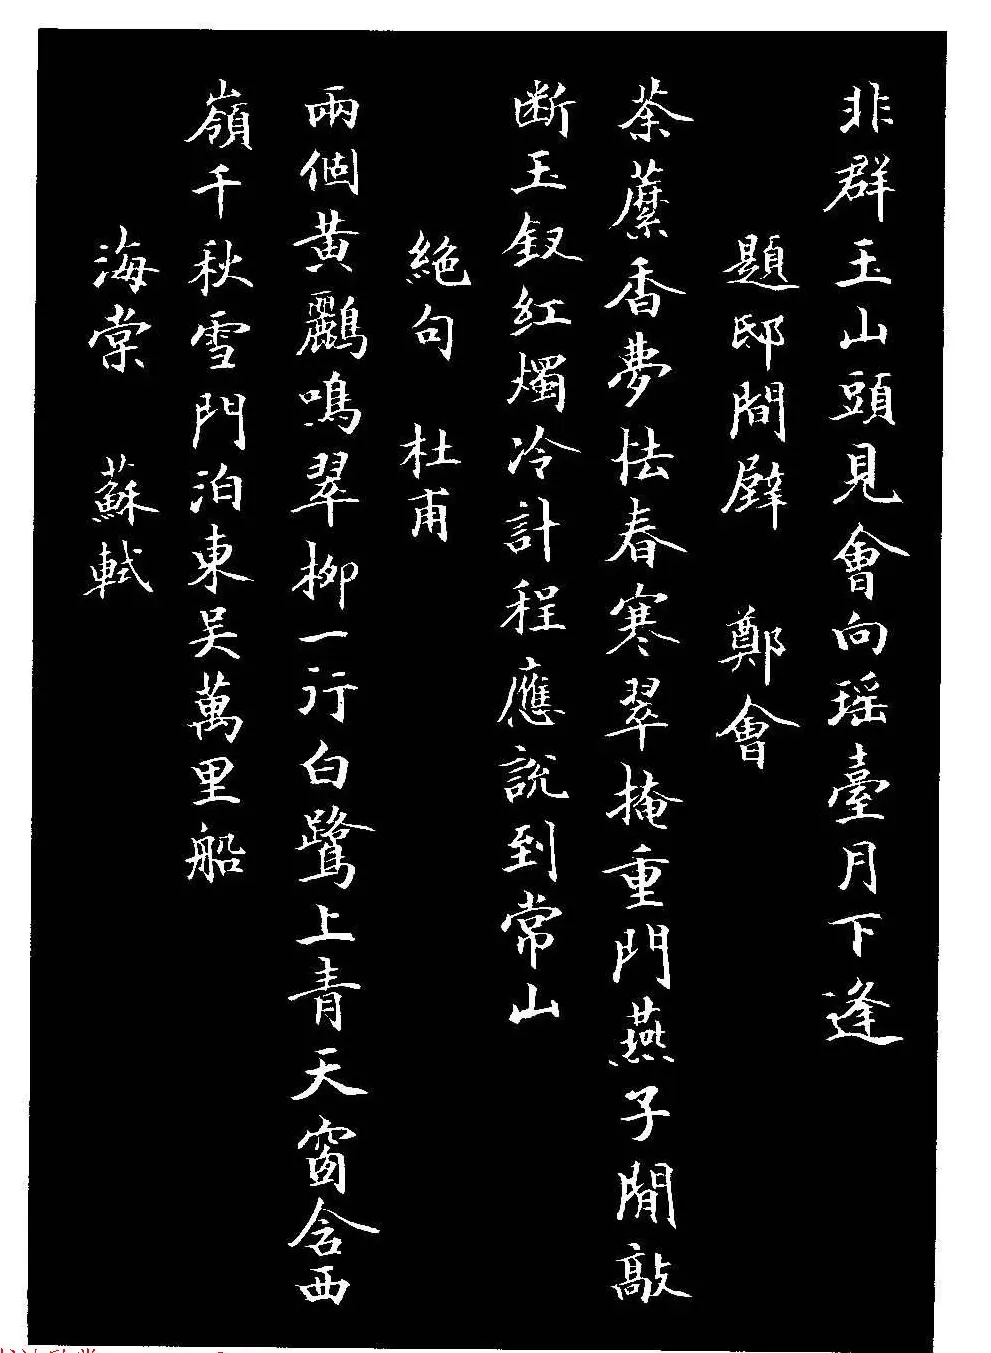 非群玉山頭見會向瑶臺月下逢
題邸間壁 鄭會
荼蘼香夢怯春寒翠掩重門燕子閒敲
断玉釵紅燭冷計程應說到常山
絕句 杜甫
兩個黃鸝鳴翠柳一行白鷺上青天窗含西
嶺千秋雪門泊東吴萬里船
海棠 蘇軾